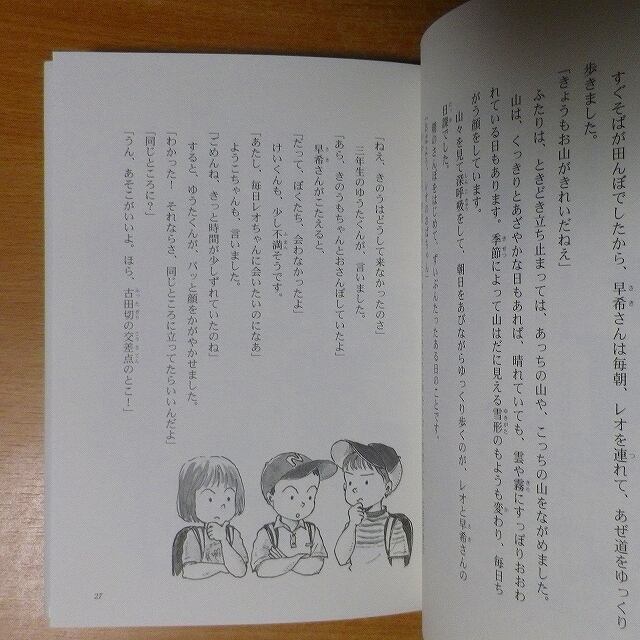 すぐそばが田んぼでしたから、早希さんは毎朝、レオを連れて、あぜ道をゆっくり
歩きました。
「きょうもお山がきれいだねえ」
ふたりは、ときどき立ち止まっては、あっちの山や、こっちの山をながめました。
山は、くっきりとあざやかな日もあれば、晴れていても、雲や霧にすっぽりおおわ
れている日もあります。季節によって山はだに見える雪形のもようも変わり、毎日ち
がう顔をしています。
山々を見て深呼吸をして、朝日をあびながらゆっくり歩くのが、レオと早希さんの
日課でした。
朝のさんぽをはじめて、ずいぶんたったある日のことです。
「ねえ、きのうはどうして来なかったのさ」
三年生のゆうたくんが、言いました。
「あら、きのうもちゃんとおさんぽしていたよ」
早希さんがこたえると、
「だって、ぼくたち、会わなかったよ」
けいくんも、少し不満そうです。
「あたし、毎日レオちゃんに会いたいのになあ」
ようこちゃんも、言いました。
「ごめんね、きっと時間が少しずれていたのね」
すると、ゆうたくんが、パッと顔をかがやかせました。
「わかった！ それならさ、同じところに立ってたらいいんだよ」
「同じところに？」
「うん、あそこがいいよ、ほら、古田切の交差点のとこ！」
27